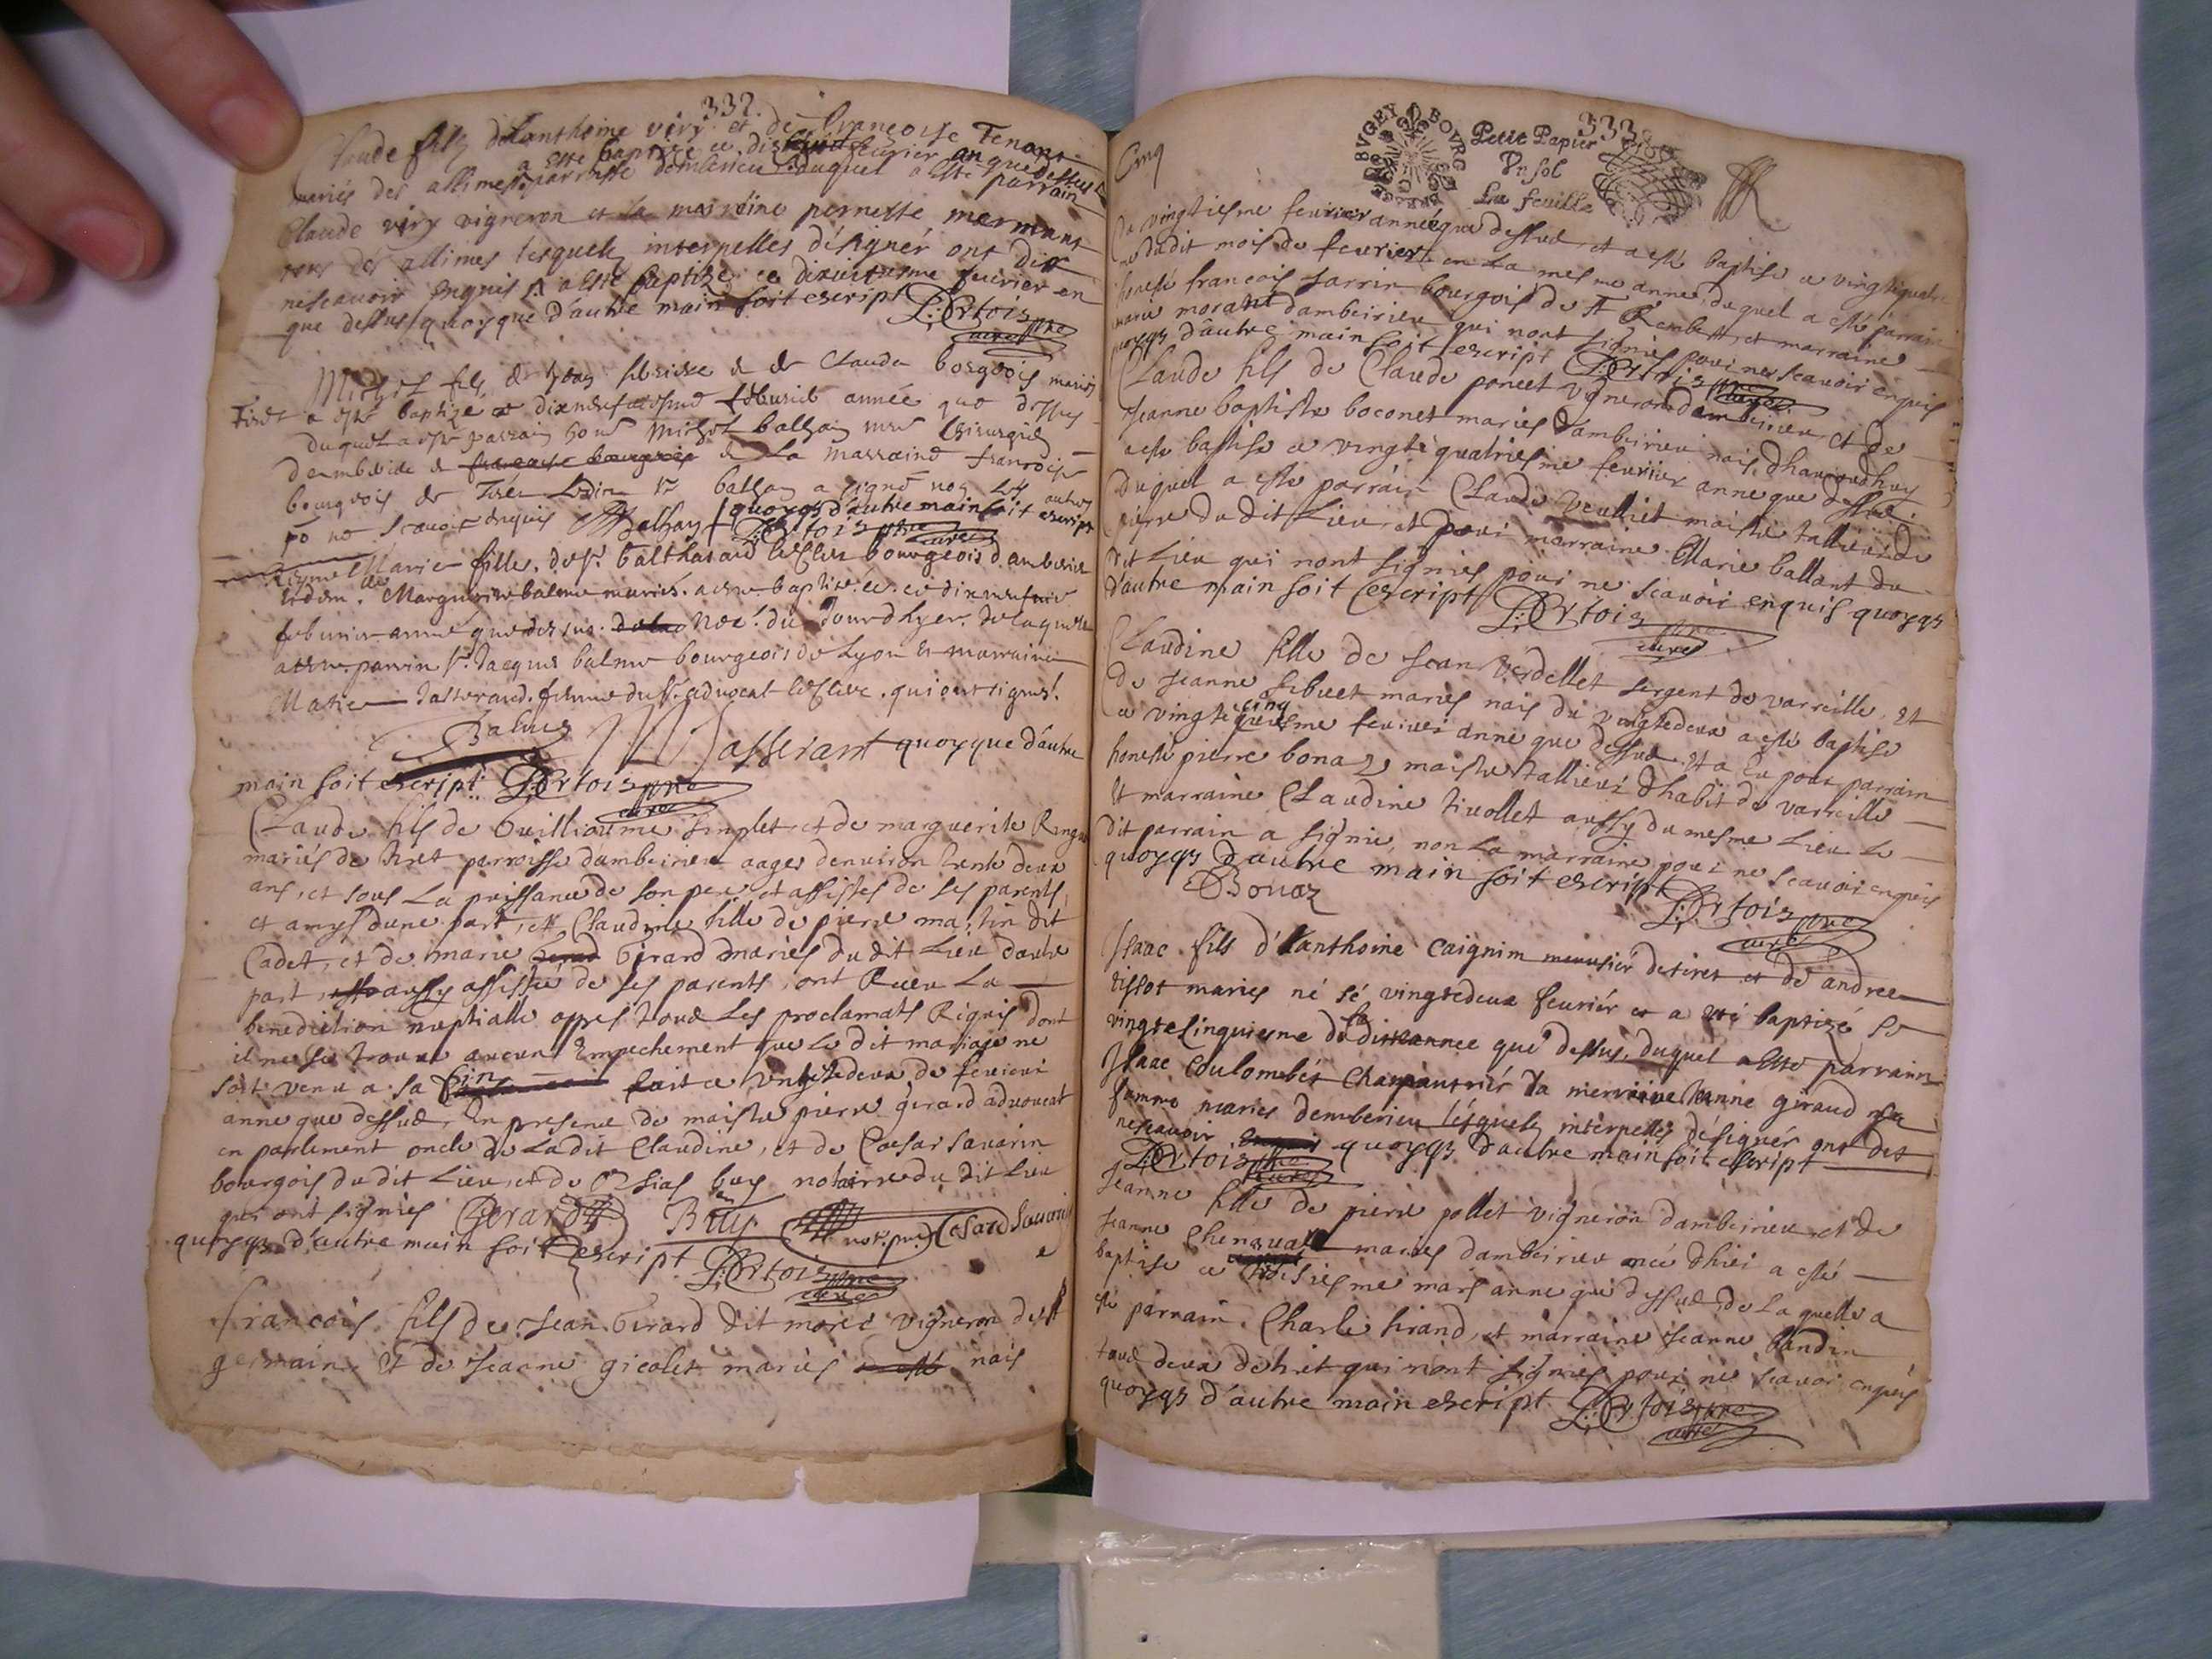 332.
Claude fils d'anthoine viry et de francoise Tenant
mariés des allimes parroisse dambérieu duquel a esté parrain
a esté baptizé ce février an que dessus
Claude viry vigneron et la marréine pernette mermant
tous des allimes lesquels interpellés désigner ont dit
nescavoir enquis a esté baptizé ce dixuitiesme feuvrier en
que dessus quoyque d'autre main soit escript D: Ortois pre
curé
Michel fils de et de Clauda borgeois mariés
Tiret a esté baptizé ce dixneufviesme febvrier année que dessus
duquel a esté parrain Michel balhay Chirurgien
dambérieu et francoise bourgeois et La marraine francoise
bourgeois de Tiret balhay a signé non autres
po ne scavoir enquis Balhay quoyqs d'autre main soit escript
D: Ortois pre
curé
Marie fille de sr. balthasard bourgeois d'amberieu
et de Marguerite balme mariés a esté baptizée ce dixneufvie
febvrier année que dessus née du jourdhyer. de laquelle
a esté parrin sr. Jacques balme bourgeois de Lyon et marraine
Marie Jasserand femme du sr. advocat qui ont signés.
Balme M Jasserant quoyque d'autre
main soit escript D: Ortois pre
curé
Claude fils de Guilliaume Simplet et de marguerite
mariés de tiret parroisse dambeirieu aages denviron trente deux
ans, et sous La puissance de son pere et assistes de ses parents
et amys dune part, et Claudine fille de pierre martin dit
Cadet, et de marie Girard mariés dudit Lieu dautre
part, aussy assistée de ses parents, ont Receu La
benediction nuptialle appres tous les proclamats Requis dont
il ne se trouve aucun Empechement que Le dit mariage ne
soit venu a sa fin fait ce vingtedeux de feuvrier
anne que dessus, En presence de maistre pierre gerard advoucat
en parlement oncle de Ladit Claudine, et de Coesar Savarin
bourgois du dit Lieu, et de Osias buy notairre du dit Lieu
qui ont signiés Gerard Buy not. Cesard Savarin
quoyqs d'autre main soit Escript D: Ortois pre
curé
francois fils de Jean Girard dit morel vigneron de st
germain et de Jeanne gicolet mariés nais
333
BVGEY BOVRG
Petit Papier
Un sol
La feuille
Cinq
du vingtiesme feuvrier année que dessus et a esté baptise ce vingtiquatre
du dit mois de feuvrier en La mesme anne, duquel a esté parrain
honeste francois sarrin bourgois de st Rambert, et marraine
marie morant dambeirieu qui nont signiés pour ne scavoir enquis
quoyqs d'autre main soit escript D: Ortois pre
curé
Claude fils de Claude poncet vigneron dambeirieu, et de
Jeanne baptiste boconet mariés dambeirieu nais dhaujourdhuy
a esté baptise ce vingtiquatriesme feuvrier anne que dessus.
Duquel a esté parrain Claude Veulliet maistre tallieur de
pierre du dit Lieu, et pour marraine Marie ballant du
dit Lieu qui nont signies pour ne scavoir enquis quoyqs
d'autre main soit escript D: Ortois pre
curé
Claudine fille de Jean Verdellet sergent de varreille, Et
de Jeanne sibuet mariés nais du vingtedeux a esté baptise
ce vingtecinquiesme feuvrier anne que dessus. Et a Eu pour parrain
honeste pierre bonaz maistre tallieur dhabit de varreille
Et marraine Claudine tivollet aussy du mesme Lieu Le
dit parrain a signie, non La marraine pour ne scavoir enquis
quoyqs d'autre main soit escript
Bonaz D: Ortois pre
curé
Isaac fils d'anthoine Caignim menusiér de tiret et de andree
tissot mariés né le vingtedeux feuvriér et a esté baptizé le
vingtecinquiesme du dit année que dessus, duquel a esté parrain
Isaac Coulombét Charpantriér La mérreine Anne giraud sa
femme mariés dembérieu lésquels interpellés désignér ont dit
nescavoir quoyqs d'autre main soit escript
D: Ortois pre
curé
Jeanne fille de pierre pollet vigneron dambeirieu et de
Jeanne Chenaval mariés dambeirieu née dhiei a esté
baptise ce troisiesme mars anne que dessus, de La quelle a
esté parrain Charle tirand, et marraine Jeanne bandin
tous deux de tiret qui nont signies pour ne scavoir enquis
quoyqs d'autre main escript D: Ortois pre
curé